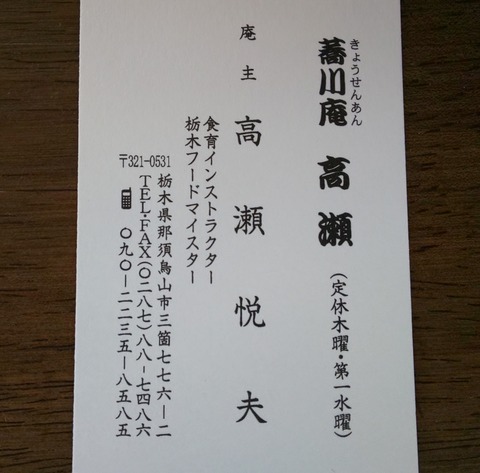 きょうせんあん
蕎川庵 高瀬
(定休木曜・第一水曜)
庵主 高瀬悦夫
食育インストラクター
栃木フードマイスター
〒321-0531 栃木県那須烏山市三箇七七六ー二
TEL・FAX(〇二八七)八八ー七四八六
〇九〇ー二二三五ー八五八五